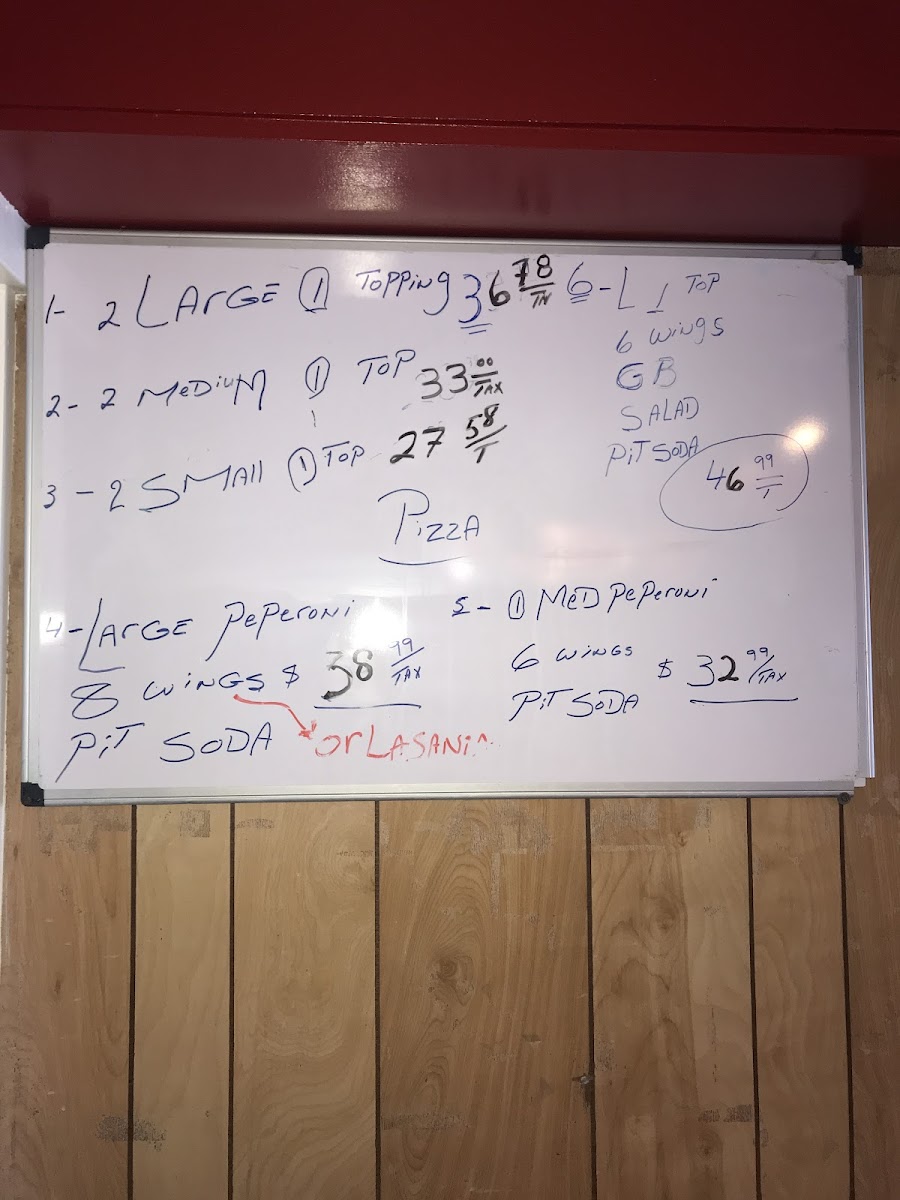 1- 2 LARGE ① TOPPING 36 78/TX
2- 2 MEDIUM ① TOP 33 00/TAX
3 - 2 SMAll ① TOP 27 58/T
6 - L 1 TOP
6 wings
GB
SALAD
PiT SODA
46 99/T
PizzA
4- LARGE PePeroni
8 wiNGS $ 38 99/TAX
PiT SODA or LASANiA
5 - ① MeD PePeroni
6 wiNGS $ 32 99/TAX
PiT SODA